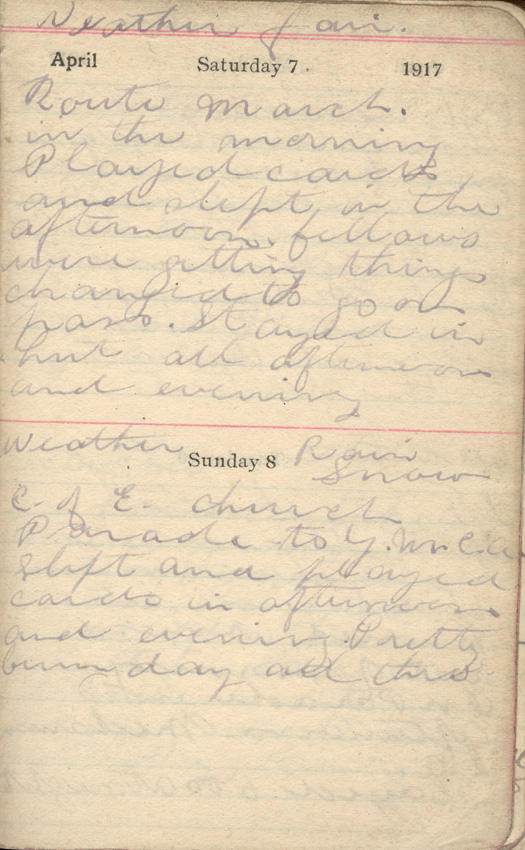 Weather fair.
April Saturday 7. 1917
Route March.
in the morning
Played cards
and slept in the
afternoon. fellows
were getting things
changed to go on
pass. Stayed in
hut all afternoon
and evening
Weather Rain
Sunday 8 Snow
C. of E. church
Parade to Y.M.C.A
slept and played
cards in afternoon
and evening. Pretty
bum day all thro.